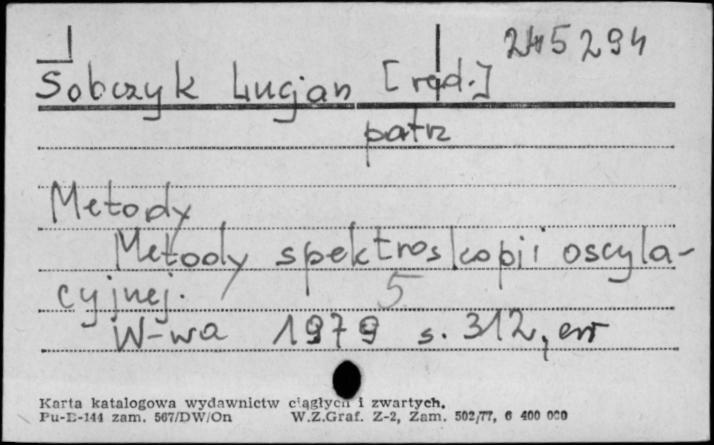 245294
Sobczyk Lucjan [red.]
patrz
Metody
Metody spektroskopii oscyla-
cyjnej. 5
W-wa 1979 s. 312, err
Karta katalogowa wydawnictw ciągłych i zwartych.
Pu-E-144 zam. 567/DW/On W.Z.Graf. Z-2, Zam. 502/77, 6 400 000